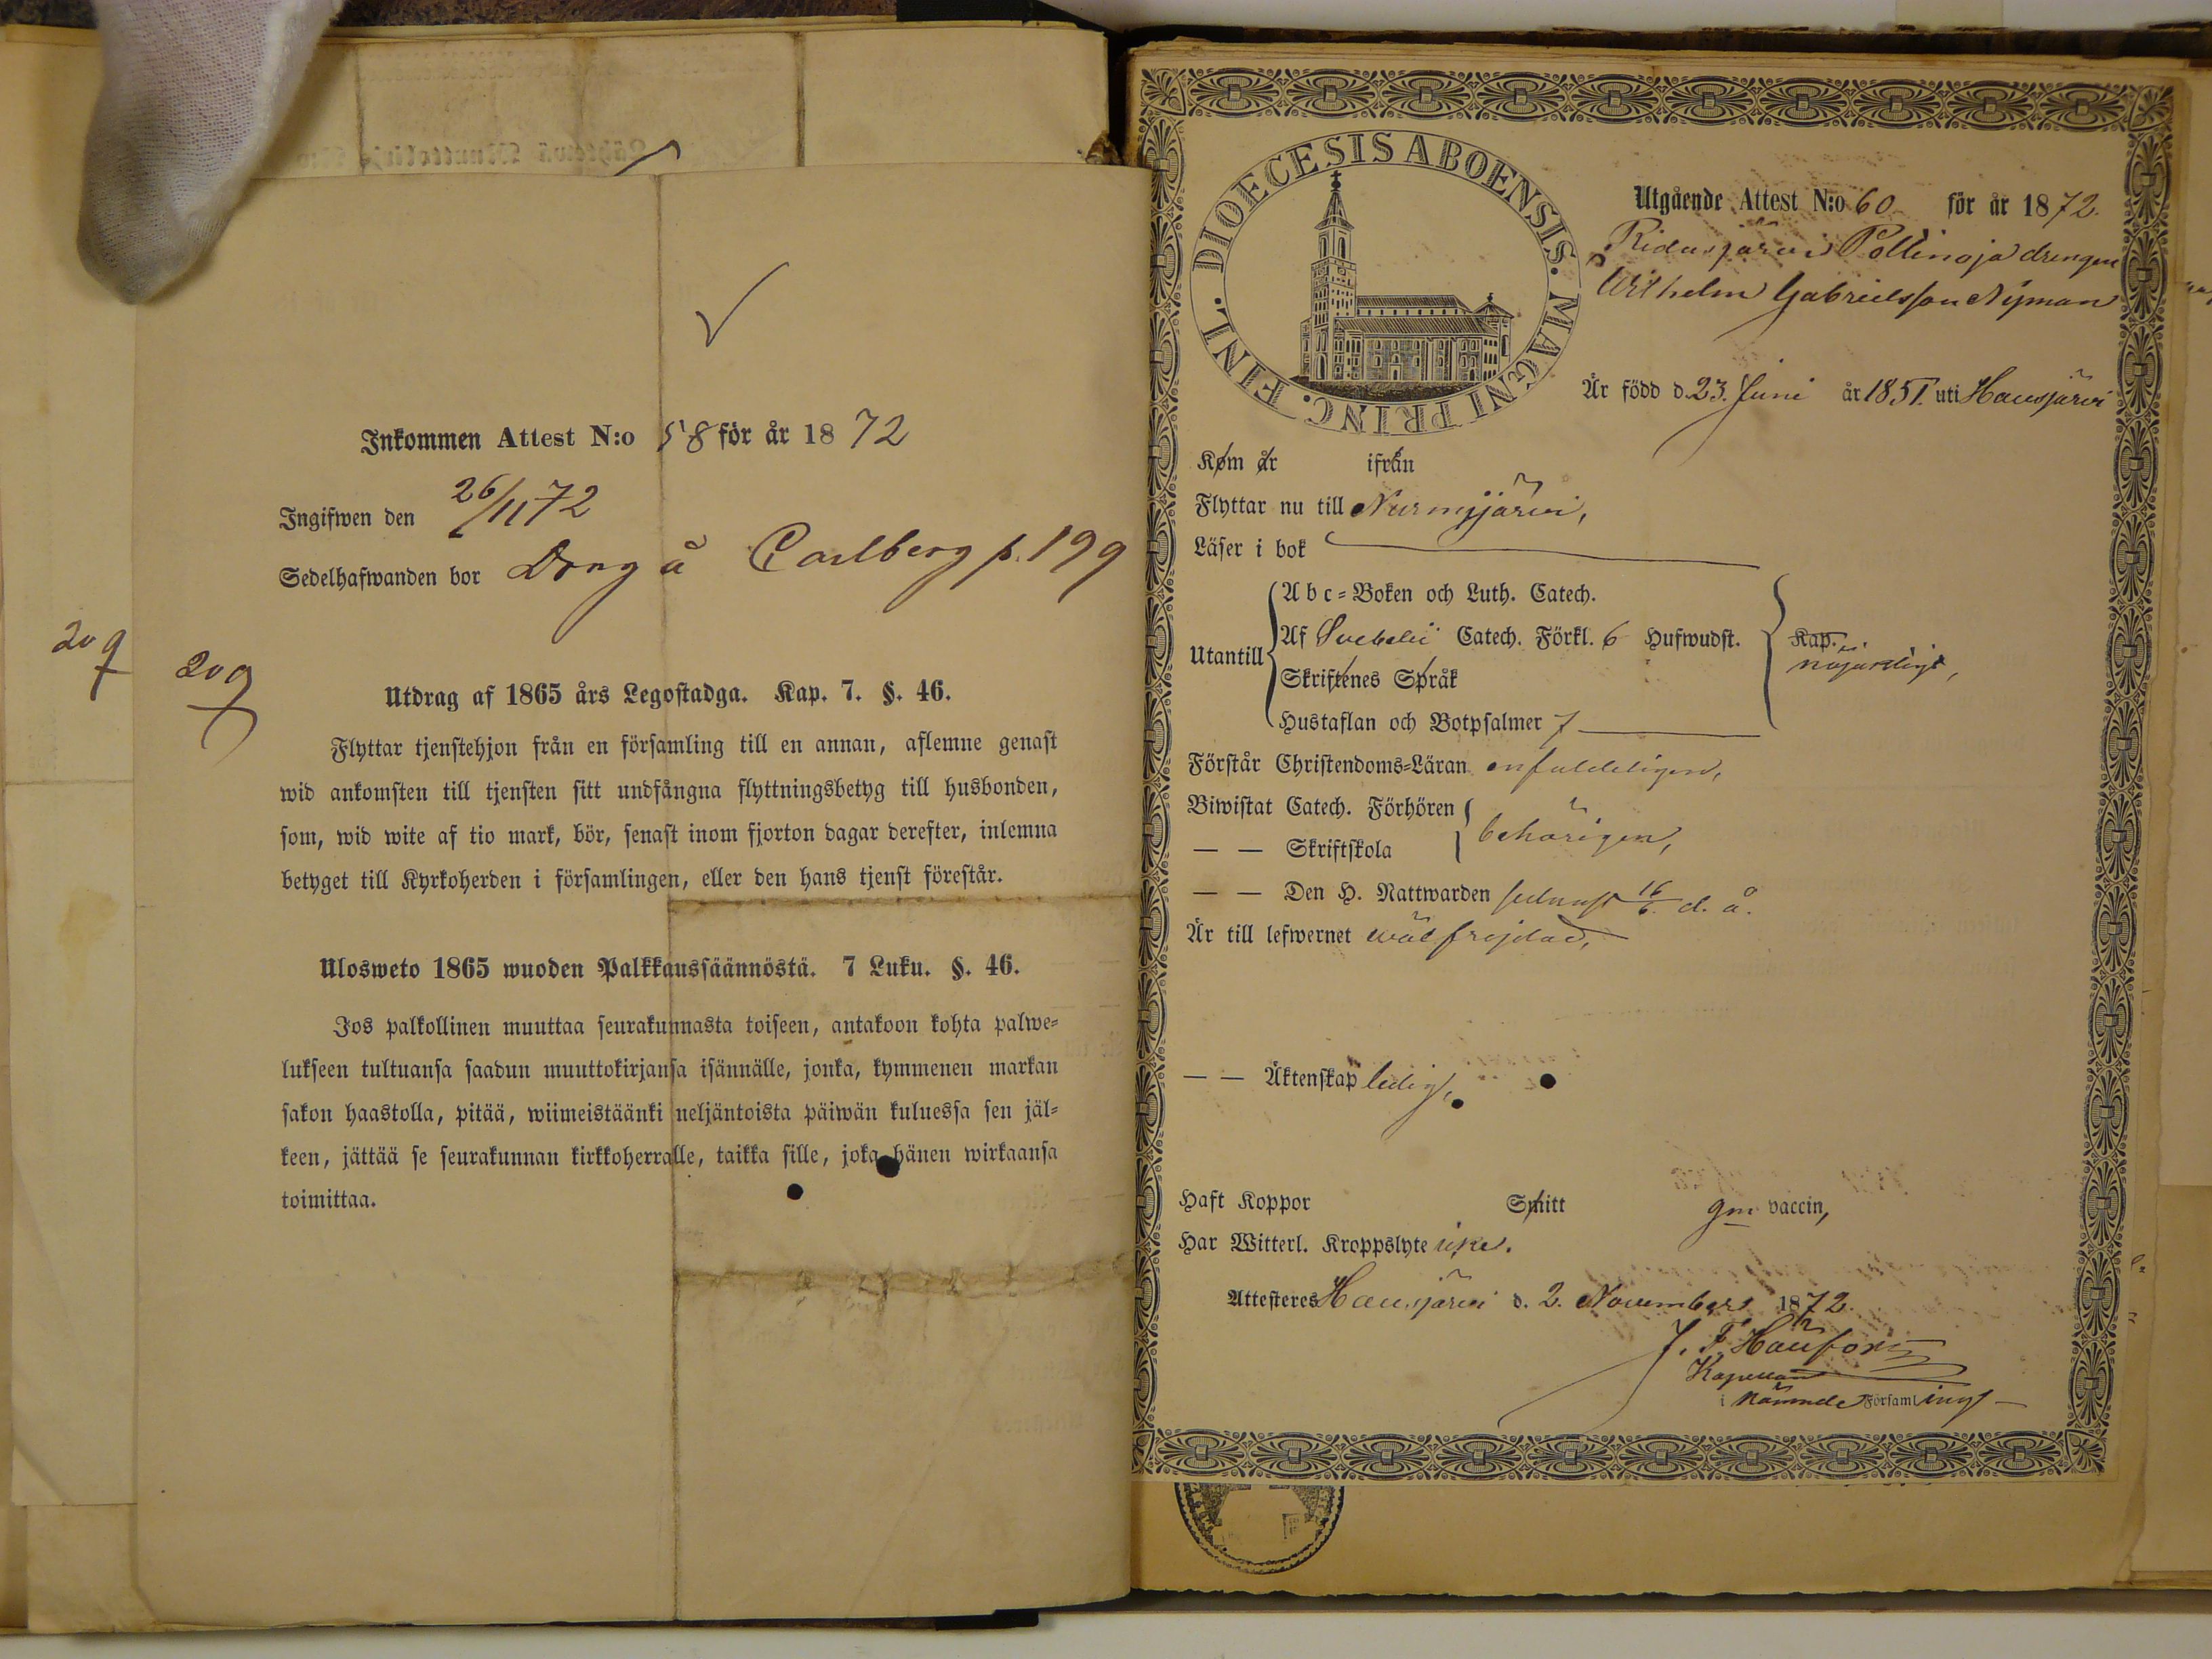 ✓
Inkommen Attest N:o 58 för år 1872
Ingifwen den 26/11 72
Sedelhafwanden bor Dräng å Carlberg p. 199
209
209
Utdrag af 1865 års Legostadga. Kap. 7. §. 46.
Flyttar tjenstehjon från en församling till en annan, aflemne genast
wid ankomsten till tjensten sitt undfångna flyttningsbetyg till husbonden,
som, wid wite af tio mark, bör, senast inom fjorton dagar derefter, inlemna
betyget till Kyrkoherden i församlingen, eller den hans tjenst förestår.
Ulosweto 1865 wuoden Palkkaussäännöstä. 7 Luku. §. 46.
Jos palkollinen muuttaa seurakunnasta toiseen, antakoon kohta palwe=
lukseen tultuansa saadun muuttokirjansa isännälle, jonka, kymmenen markan
sakon haastolla, pitää, wiimeistäänki neljäntoista päiwän kuluessa sen jäl=
keen, jättää se seurakunnan kirkkoherralle, taikka sille, joka hänen wirkaansa
toimittaa.
DIOECESIS ABOENSIS. MAGNI PRINC. FINL.
Utgående Attest N:o 60 för år 1872.
Ridasjärvi Pöllinoja drengen
Wilhelm Gabrielsson Nyman
Är född d. 23. Juni år 1851. uti Hausjärvi
Kom år ifrån
Flyttar nu till Nurmijärvi,
Läser i bok
Utantill
Abc=Boken och Luth. Catech.
Af Svebelii Catech. Förkl. 6 Hufwudst.
Skriftenes Språk
Hustaflan och Botpsalmer 7
Kap.
nöjaktligt,
Förstår Christendoms=Läran enfaldeligen,
Biwistat Catech. Förhören
— — Skriftskola
behörigen,
— — Den H. Nattwarden sednast 16/6. d. å.
Är till lefwernet wäl frejdad,
— — Äktenskap ledig,
Haft Koppor Smitt gm vaccin,
Har Witterl. Kroppslyte icke.
Attesteres Hausjärvi d. 2. November 1872.
J. F. Häufors
Kapellan
i nämnde Församling